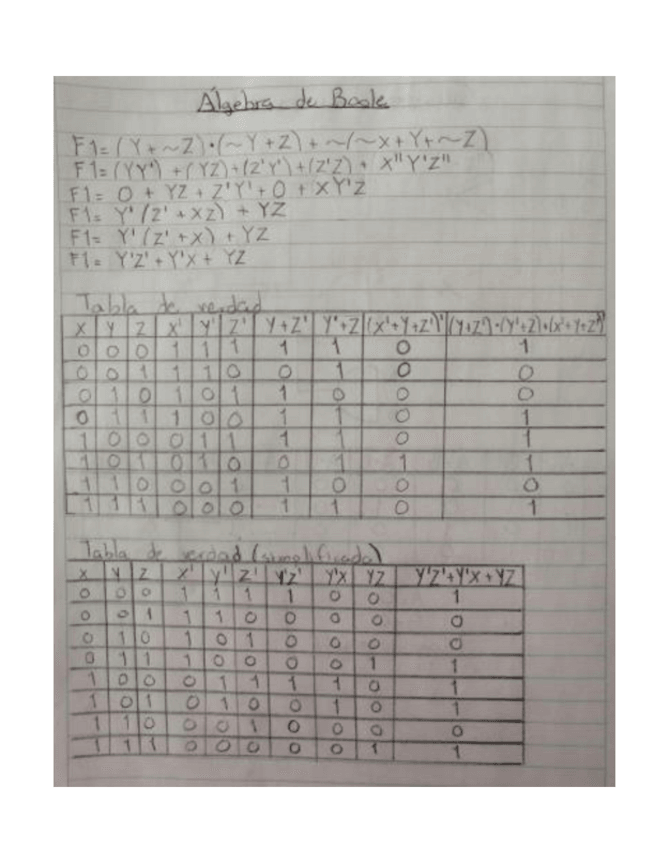 Álgebra de Boole
F1=(Y+~Z)·(~Y+Z)+~(~X+Y+~Z)
F1=(YY')+(YZ)+(Z'Y')+(Z'Z)+X''Y'Z''
F1= 0 + YZ + Z'Y' + 0 + XY'Z
F1= Y'(Z'+XZ) + YZ
F1= Y'(Z'+X) + YZ
F1= Y'Z' + Y'X + YZ
Tabla de verdad
X Y Z X' Y' Z' Y+Z' Y'+Z (X'+Y+Z')' (Y+Z')·(Y'+Z)+(X'+Y+Z')'
0 0 0 1 1 1 1 1 0 1
0 0 1 1 1 0 0 1 0 0
0 1 0 1 0 1 1 0 0 0
0 1 1 1 0 0 1 1 0 1
1 0 0 0 1 1 1 1 0 1
1 0 1 0 1 0 0 1 1 1
1 1 0 0 0 1 1 0 0 0
1 1 1 0 0 0 1 1 0 1
Tabla de verdad (simplificada)
X Y Z X' Y' Z' Y'Z' Y'X YZ Y'Z'+Y'X+YZ
0 0 0 1 1 1 1 0 0 1
0 0 1 1 1 0 0 0 0 0
0 1 0 1 0 1 0 0 0 0
0 1 1 1 0 0 0 0 1 1
1 0 0 0 1 1 1 1 0 1
1 0 1 0 1 0 0 1 0 1
1 1 0 0 0 1 0 0 0 0
1 1 1 0 0 0 0 0 1 1